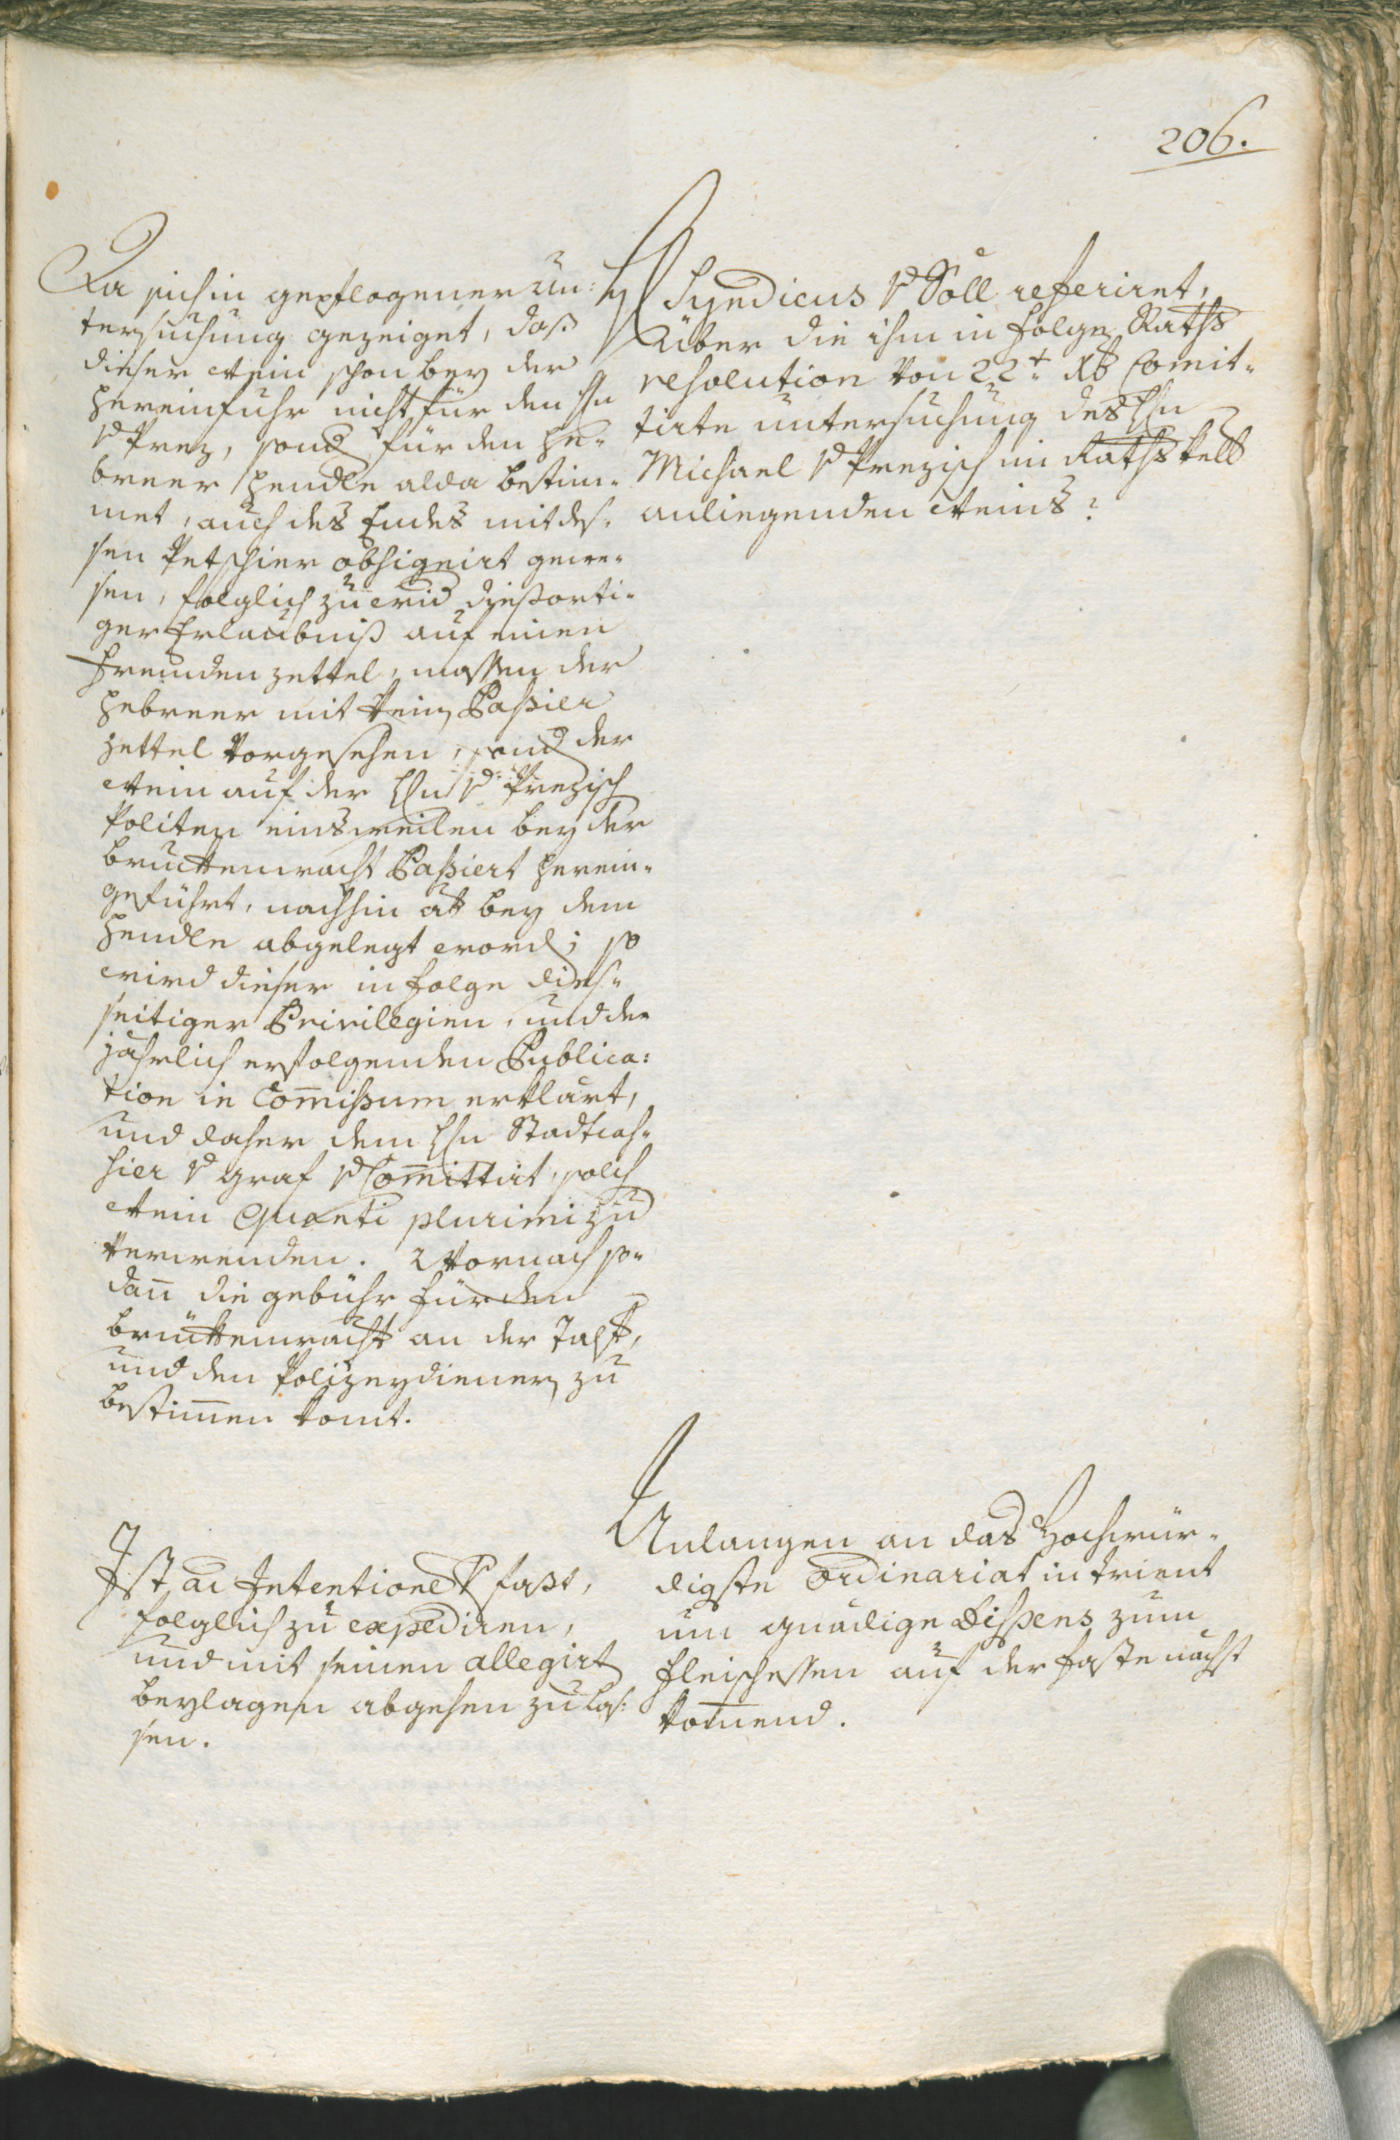 206.
Da sich in gepflogener Un-
tersuchung gezeiget, daß
dieser Wein schon bey der
Hereinfuhr nicht für den H
v Prez, sond für den He-
breer Hendle alda bestim-
met, auch des Endes mit des-
sen Petschier obsigniert gewe-
sen, folglich zuwid dießorti-
ger Erlaubniß auf einen
fremden zettel, massen der
Hebreer mit kein Passier
zettel vorgesehen, sond der
Wein auf der H v Prezisch
Politen einsweilen bey der
bruckenwacht Passiert herein-
geführt, nachhin at bey dem
Hendle abgelegt word; so
wird dieser in folge dies-
seitiger Privilegien, und der
jährlich erfolgenden Publica-
tion in Comissum erklärt,
und daher dem H Stadtcas-
sier v Graf Comittirt, solch
Wein quanti plurimi zu
verwenden. Wornach so-
dan die gebühr für den
bruckenwacht an der Talf,
und den Polizeydienern zu
bestimen komt.
H Syndicus v Söll referiret,
Über die ihm in folge Raths
resolution von 22t Xb Comit-
tirte untersuchung des H
Michael v Prezisch im Rathskell
anliegenden Weins?
Ist ad Intentione Vfasst,
folglich zu expediren,
und mit seinen allegirt
beylagen abgehen zu las-
sen.
Anlangen an das Hochwür-
digste Ordinariat in Trient
um gnädige Dispens zum
fleischessen auf der faste nächst
komend.